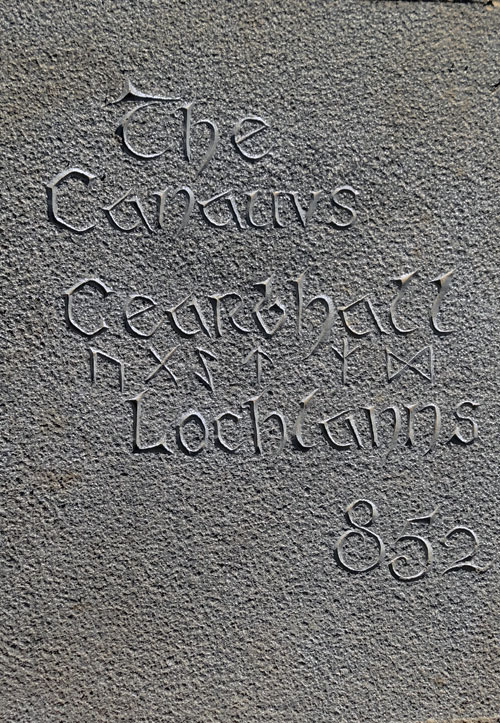 The
Canauvs
Cearbhall
ᚢᚷᚨᛏ ᛉᛞ
Lochlanns
852